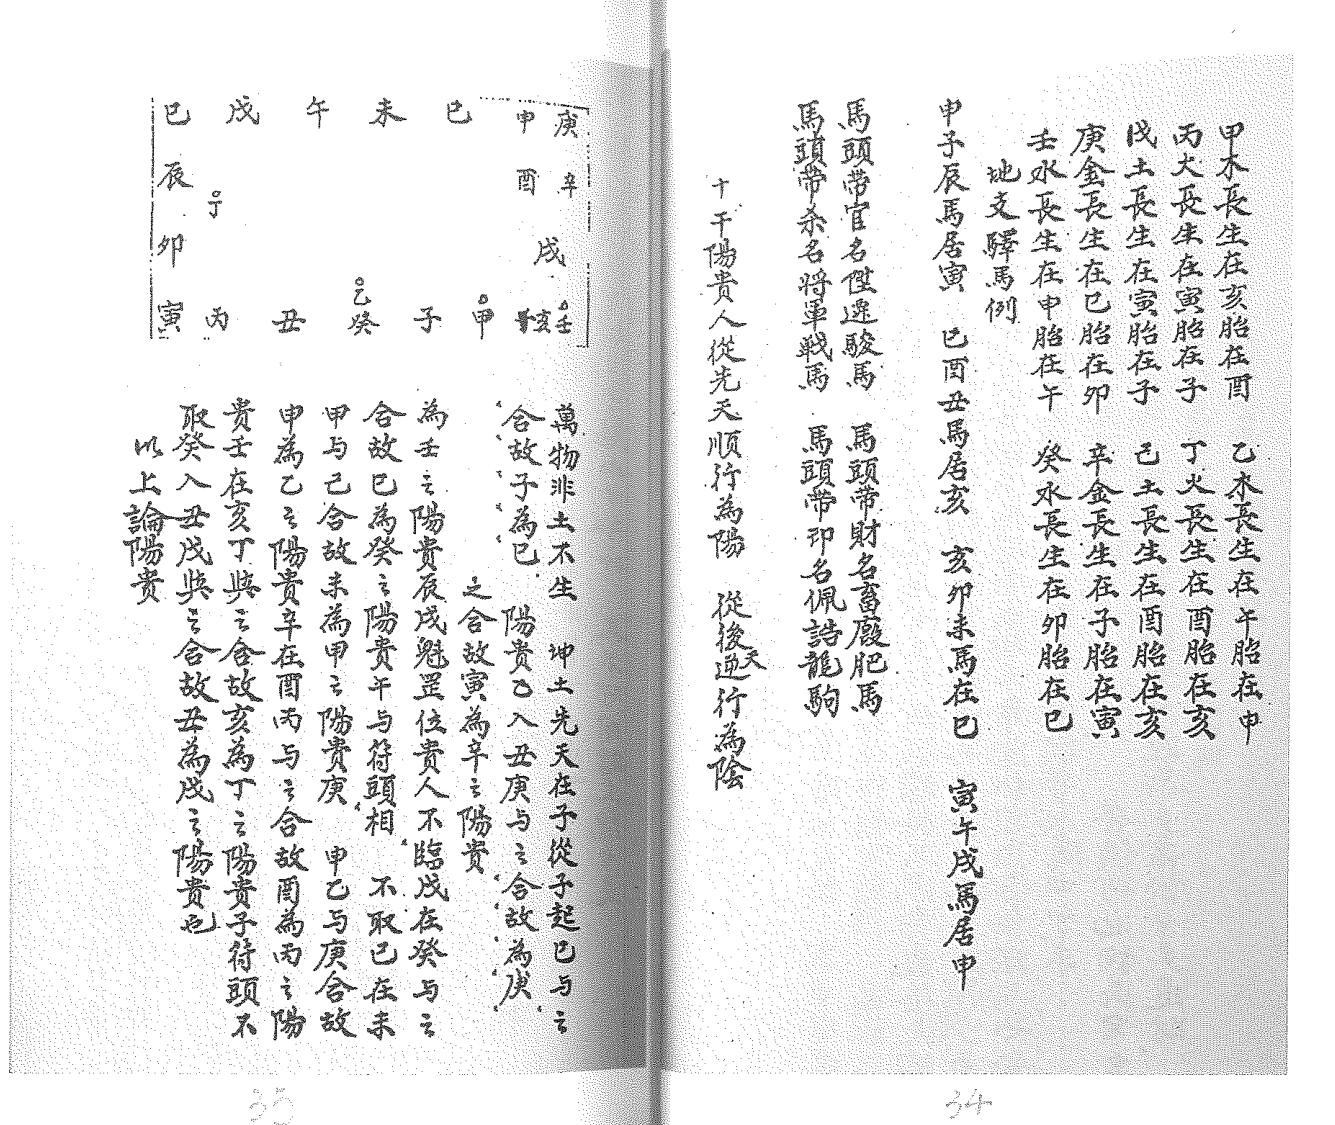 甲木長生在亥胎在酉　乙木長生在午胎在申
丙火長生在寅胎在子　丁火長生在酉胎在亥
戊土長生在寅胎在子　己土長生在酉胎在亥
庚金長生在巳胎在卯　辛金長生在子胎在寅
壬水長生在申胎在午　癸水長生在卯胎在巳
地支驛馬例
申子辰馬居寅　巳酉丑馬居亥　亥卯未馬在巳　寅午戌馬居申
馬頭帶官名陞遷駿馬　馬頭帶財名畜廄肥馬
馬頭帶杀名將軍戰馬　馬頭帶印名佩誥龍駒
十干陽貴人從先天順行為陽　從後天逆行為陰
34
巳　戌　午　未　巳　申　庚
辰　丁　酉　辛
卯　戌
寅　丙　丑　乙癸　子　甲　亥　壬
萬物非土不生　坤土先天在子從子起巳与之
合故子為巳　陽貴乙入丑庚与之合故為庚
之合故寅為辛之陽貴
為壬之陽貴辰戌魁罡位貴人不臨戌在癸与之
合故巳為癸之陽貴午与符頭相　不取已在未
甲与己合故未為甲之陽貴庚　申乙与庚合故
申為乙之陽貴辛在酉丙与之合故酉為丙之陽
貴壬在亥丁與之合故亥為丁之陽貴子符頭不
取癸入丑戊與之合故丑為戊之陽貴也
以上論陽貴
35